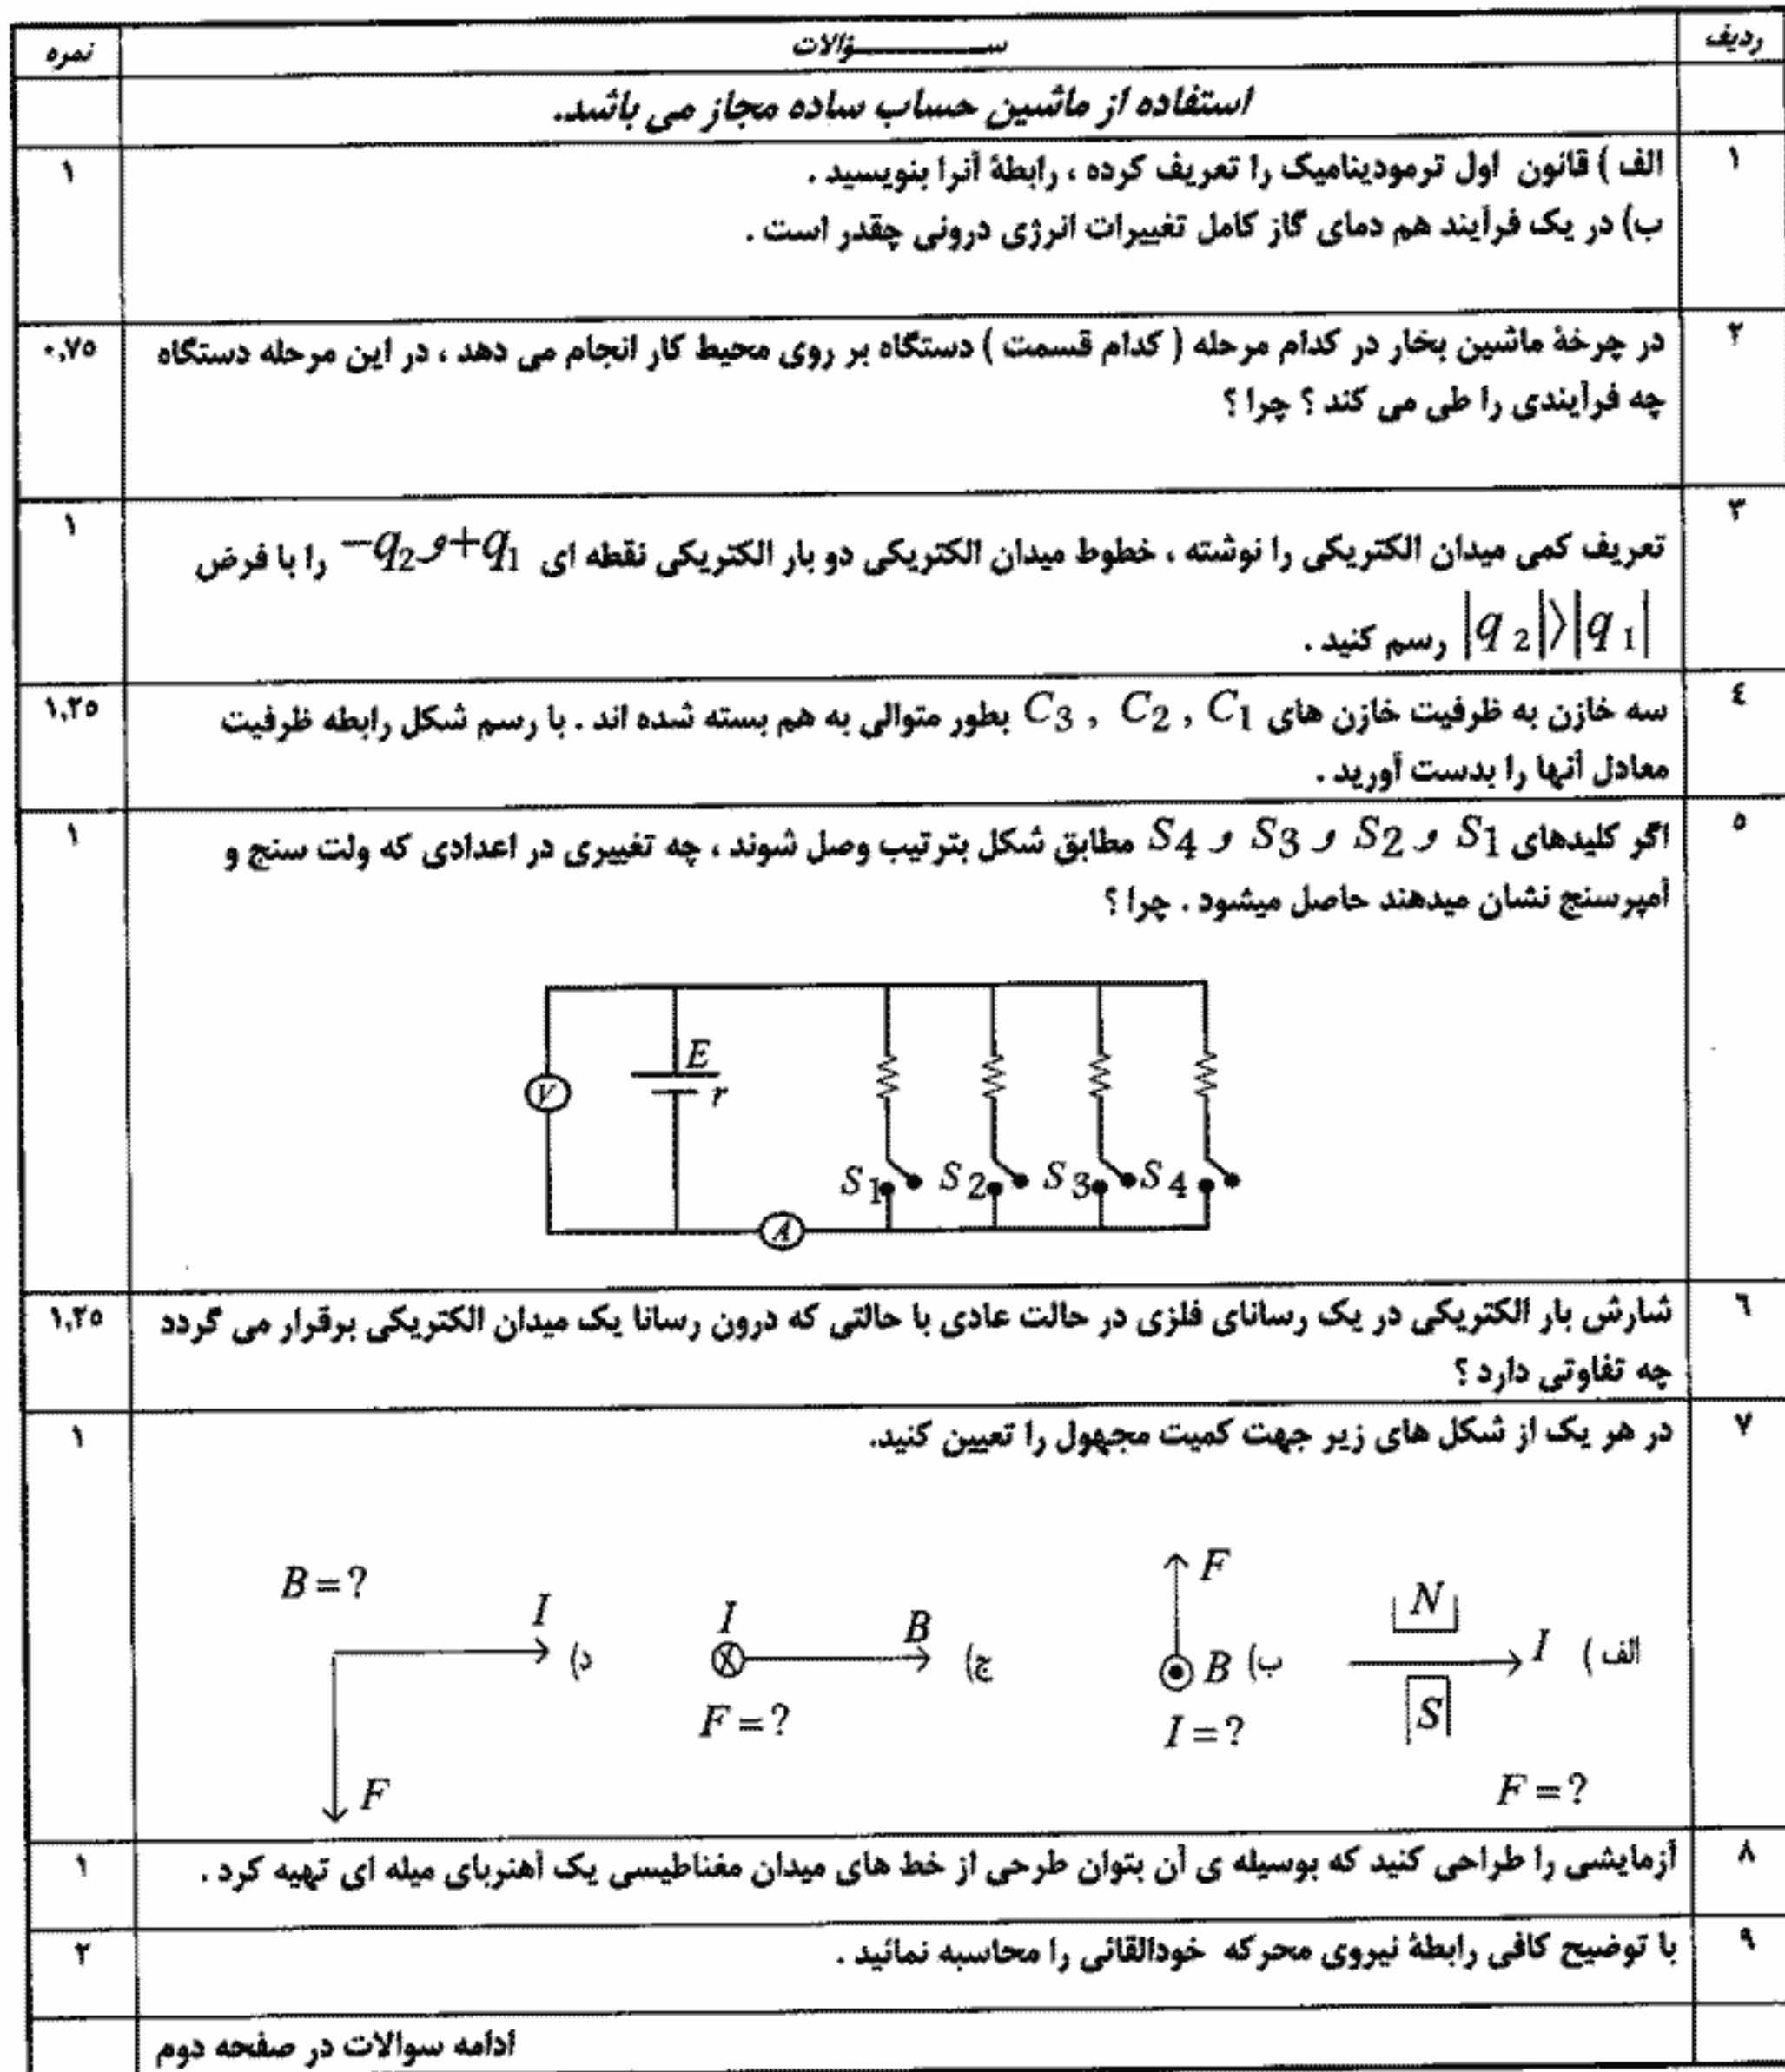 ردیف ســـــــــــؤالات نمره
استفاده از ماشین حساب ساده مجاز می باشد.
۱ الف ) قانون اول ترمودینامیک را تعریف کرده ، رابطهٔ آنرا بنویسید . ۱
ب) در یک فرآیند هم دمای گاز کامل تغییرات انرژی درونی چقدر است .
۲ در چرخهٔ ماشین بخار در کدام مرحله ( کدام قسمت ) دستگاه بر روی محیط کار انجام می دهد ، در این مرحله دستگاه ۰,۷۵
چه فرآیندی را طی می کند ؟ چرا ؟
۳ تعریف کمی میدان الکتریکی را نوشته ، خطوط میدان الکتریکی دو بار الکتریکی نقطه ای +q1 و -q2 را با فرض ۱
|q 2|〉|q 1| رسم کنید .
٤ سه خازن به ظرفیت خازن های C1 , C2 , C3 بطور متوالی به هم بسته شده اند . با رسم شکل رابطه ظرفیت ۱,۲۵
معادل آنها را بدست آورید .
۵ اگر کلیدهای S1 و S2 و S3 و S4 مطابق شکل بترتیب وصل شوند ، چه تغییری در اعدادی که ولت سنج و ۱
آمپرسنج نشان میدهند حاصل میشود . چرا ؟
E
V r
S1 S2 S3 S4
A
٦ شارش بار الکتریکی در یک رسانای فلزی در حالت عادی با حالتی که درون رسانا یک میدان الکتریکی برقرار می گردد ۱,۲۵
چه تفاوتی دارد ؟
۷ در هر یک از شکل های زیر جهت کمیت مجهول را تعیین کنید. ۱
الف ) N I S F=?
ب) F B I=?
ج) I B F=?
د) B=? I F
۸ آزمایشی را طراحی کنید که بوسیله ی آن بتوان طرحی از خط های میدان مغناطیسی یک آهنربای میله ای تهیه کرد . ۱
۹ با توضیح کافی رابطهٔ نیروی محرکه خودالقائی را محاسبه نمائید . ۲
ادامه سوالات در صفحه دوم